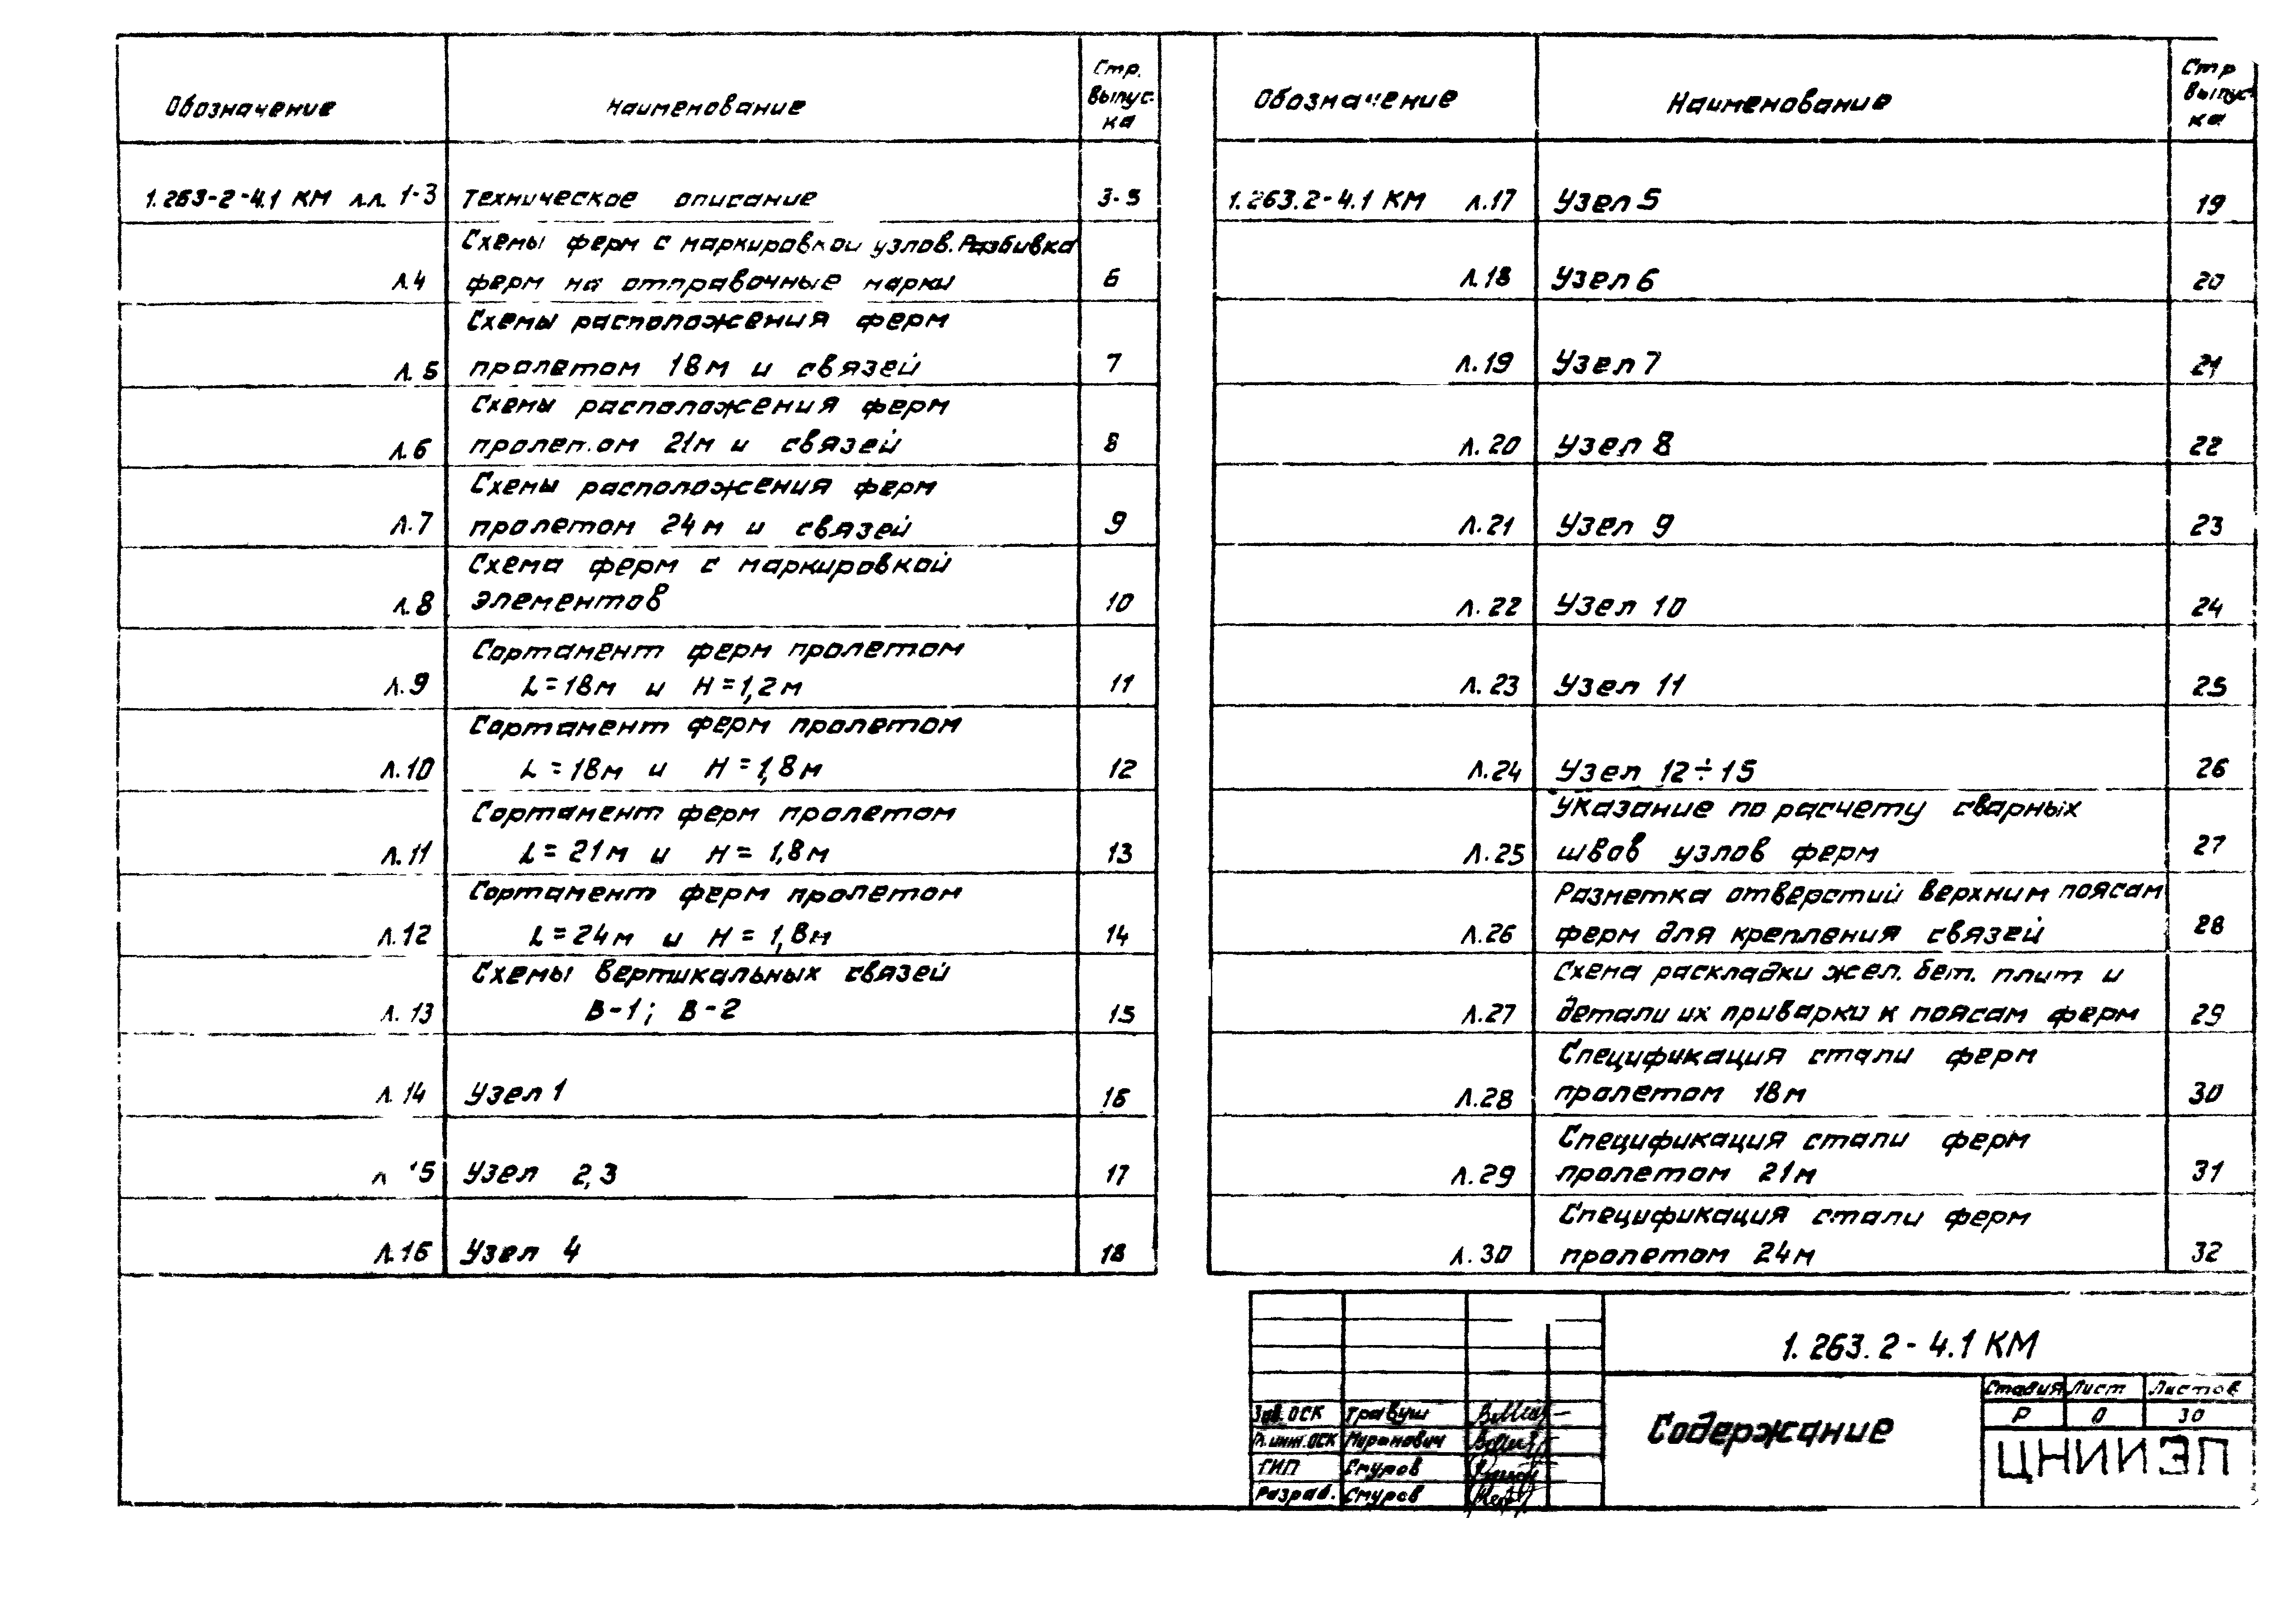 Обозначение
Наименование
Стр.
выпус-
ка
1.263-2-4.1 КМ л.л. 1-3 Техническое описание 3-5
Схемы ферм с маркировкой узлов. Разбивка
л.4 ферм на отправочные марки 6
Схемы расположения ферм
л.5 пролетом 18м и связей 7
Схемы расположения ферм
л.6 пролетом 21м и связей 8
Схемы расположения ферм
л.7 пролетом 24м и связей 9
Схема ферм с маркировкой
л.8 элементов 10
Сортамент ферм пролетом
л.9 L=18м и H=1,2м 11
Сортамент ферм пролетом
л.10 L=18м и H=1,8м 12
Сортамент ферм пролетом
л.11 L=21м и H=1,8м 13
Сортамент ферм пролетом
л.12 L=24м и H=1,8м 14
Схемы вертикальных связей
л.13 В-1; В-2 15
л.14 Узел 1 16
л 15 Узел 2,3 17
л.16 Узел 4 18
Обозначение
Наименование
Стр
выпус-
ка
1.263.2-4.1 КМ л.17 Узел 5 19
л.18 Узел 6 20
л.19 Узел 7 21
л.20 Узел 8 22
л.21 Узел 9 23
л.22 Узел 10 24
л.23 Узел 11 25
л.24 Узел 12÷15 26
Указание по расчету сварных
л.25 швов узлов ферм 27
Разметка отверстий верхним поясам
л.26 ферм для крепления связей 28
Схема раскладки жел. бет. плит и
л.27 детали их приварки к поясам ферм 29
Спецификация стали ферм
л.28 пролетом 18м 30
Спецификация стали ферм
л.29 пролетом 21м 31
Спецификация стали ферм
л.30 пролетом 24м 32
1.263.2-4.1 КМ
Содержание
Стадия Лист Листов
Р 0 30
ЦНИИЭП
Зав. ОСК Травуш
Гл. инж. ОСК Маранович
ГИП Смуров
Разраб. Смуров